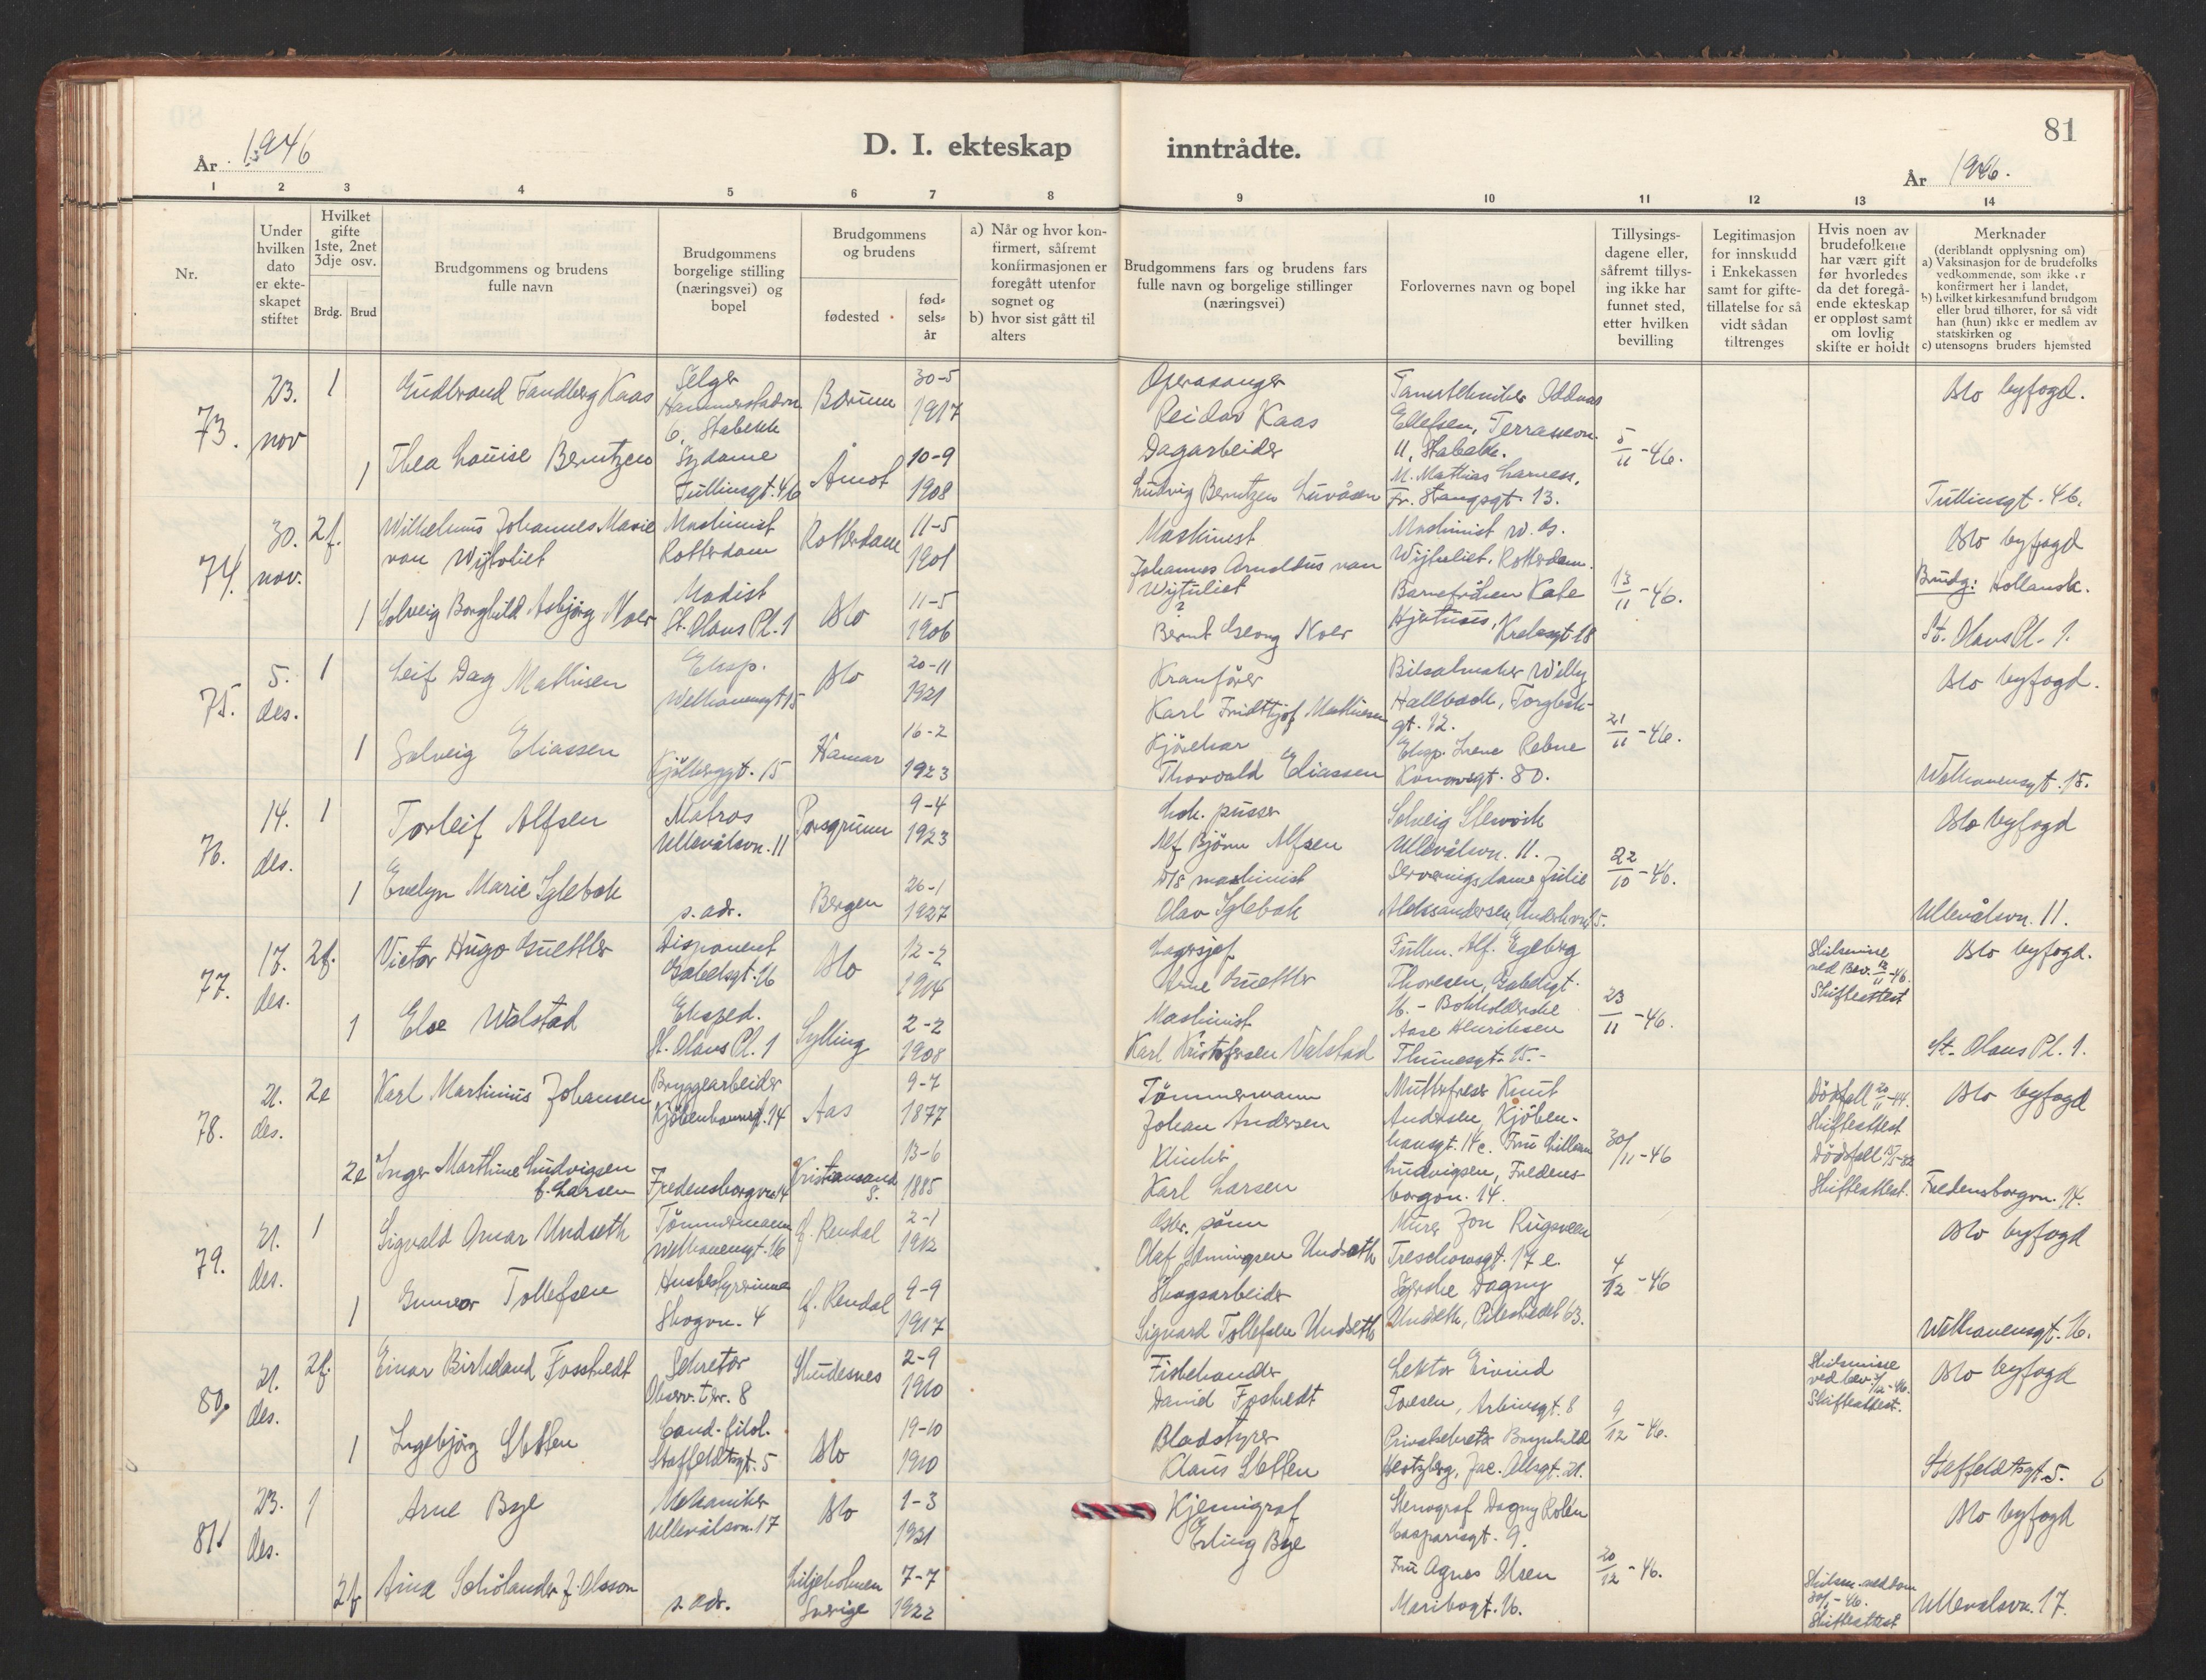 År 1946
D. I. ekteskap inntrådte.
81
År 1946.
1 2 3 4 5 6 7 8 9 10 11 12 13 14
Nr.
Under hvilken dato er ekteskapet stiftet
Hvilket gifte 1ste, 2net 3dje osv.
Brdg. Brud
Brudgommens og brudens fulle navn
Brudgommens borgelige stilling (næringsvei) og bopel
Brudgommens og brudens
fødested
fød-
sels-
år
a) Når og hvor kon-
firmert, såfremt
konfirmasjonen er
foregått utenfor
sognet og
b) hvor sist gått til
alters
Brudgommens fars og brudens fars
fulle navn og borgelige stillinger
(næringsvei)
Forlovernes navn og bopel
Tillysings-
dagene eller,
såfremt tillys-
ing ikke har
funnet sted,
etter hvilken
bevilling
Legitimasjon
for innskudd
i Enkekassen
samt for gifte-
tillatelse for så
vidt sådan
tiltrenges
Hvis noen av
brudefolkene
har vært gift
før hvorledes
da det foregå-
ende ekteskap
er oppløst samt
om lovlig
skifte er holdt
Merknader
(deriblandt opplysning om)
a) Vaksinasjon for de brudefolks
vedkommende, som ikke er
konfirmert her i landet,
b) hvilket kirkesamfund brudgom
eller brud tilhører, for så vidt
han (hun) ikke er medlem av
statskirken og
c) utensogns bruders hjemsted
73. 23. nov 1
Gudbrand Tandberg Kaas
Selger
6, Stabekk
Bærum
30-5
1917
Operasanger
Reidar Kaas
Ellefsen, Terrassevn.
11, Stabekk.
5/11-46.
Oslo byfogd.
1 Thea Louise Berntzen
Sydame
Tullinsgt. 46
Åmot
10-9
1908
Dagarbeider
Ludvig Berntzen Luvåsen
M. Mathias Larness,
Fr. Stangsgt. 13.
Tullinsgt. 46.
74. 30. nov. 2f.
Wilhelmus Johannes Marie
van Wijtvliet
Maskinist
Rotterdam
Rotterdam
11-5
1901
Maskinist
Johannes Arnoldus van
Wijtvliet
Maskinist
Wijtvliet, Rotterdam.
13/11-46.
Oslo byfogd
Brudg: Hollandsk.
1 Solveig Borghild Asbjørg Noer
Modist
St. Olavs Pl. 1
Oslo
11-5
1906
?
Bernt Georg Noer
Barnefrøken Kate
Hjertnæs, Krebsgt. 18
St. Olavs Pl. 1.
75. 5. des. 1
Leif Dag Mathisen
Eksp.
Welhavensgt 15
Oslo
20-11
1921
Kranfører
Karl Fridtjof Mathisen
Bilsalmaker Willy
Hallbäck, Torgbak-
gt. 12.
21/11-46.
Oslo byfogd.
1 Solveig Eliassen
Kjølberggt. 15
Hamar
16-2
1923
Kjørekar
Thorvald Eliassen
Eksp. Irene Rebne
Konowsgt. 80.
Welhavensgt. 15.
76. 14. des. 1
Torleif Alfsen
Matros
Ullevålsvn. 11
Porsgrunn
9-4
1923
Lok. pusser
Alf Bjørn Alfsen
Solveig Stenvik
Ullevålsvn. 11.
22/10-46.
Oslo byfogd
1 Evelyn Marie Iglebæk
s. adr.
Bergen
26-1
1927
D/S maskinist
Olav Iglebæk
Serveringsdame Julie
Aleksandersen,
Ullevålsvn. 11.
77. 17. des. 2f.
Victor Hugo Guettler
Disponent
Gabelsgt. 16
Oslo
12-2
1904
Lagersjef
Arne Guettler
Fullm. Alf. Egeberg
Thoresen, Gabelsgt.
16. - Bokholderske
23/11-46.
Skilsmisse
ved Bev. 12/11-46.
Skifteattest
Oslo byfogd.
1 Else Walstad
Eksped.
St. Olavs Pl. 1
Sylling
2-2
1908
Maskinist
Karl Kristofersen Valstad
Aase Henriksen
Thunesgt. 15.-
St. Olavs Pl. 1.
78. 21. des. 2e
Karl Martinius Johansen
Bryggearbeider
Kjøbenhavnsgt. 14
Aas
9-7
1877
Tømmermann
Johan Andersen
Mutterfreser Knut
Andersen, Kjøben-
havnsgt. 14c. Fru Lillian
30/11-46
Dødsfall 20/11-44.
Skifteattest
Oslo byfogd
2e Inger Marthine Ludvigsen
f. Larsen
Fredensborgvn. 14
Kristiansand
S.
13-6
1885
Klinker
Karl Larsen
Ludvigsen, Fredens-
borgvn. 14.
Dødsfall
Skifteattest.
Fredensborgvn. 14.
79. 21. des. 1
Sigvald Omar Undseth
Tømmermann
Welhavengt. 16
Ø. Rendal
2-1
1912
Olaf Semingsen Undseth
Murer Jon Rugsveen
Treschowsgt. 17 e.
4/12-46
Oslo byfogd
1 Gunvor Tollefsen
Husbestyrerinne
Skogvn. 4
Ø. Rendal
9-9
1917
Skogsarbeider
Sigvard Tollefsen Undseth
Syerske Dagny
Undseth, Pilestredet 63.
Welhavensgt. 16.
80. 21. des. 2f.
Einar Birkeland Fosstvedt
Sekretær
Observ. terr. 8
Skudesnes
2-9
1910
Fiskehandler
David Fostvedt
Lektor Eivind
Toresen, Arbinsgt. 8
9/12-46.
Skilsmisse
ved bev.
Skifteattest.
Oslo byfogd
1 Ingebjørg Sletten
Cand. filol.
Staffeldtsgt. 5
Oslo
19-10
1910
Bladstyrer
Klaus Sletten
Privatsekretær Brynhild
Hertzberg, Jac. Allsgt. 21.
Staffeldtsgt. 5.
81. 23. des. 1
Arne Bye
Mekaniker
Ullevålsvn. 17
Oslo
1-3
1921
Kjemigraf
Erling Bye
Stenograf Dagny Rolén
Casparisgt. 9.
20/12-46.
Oslo byfogd
2f Aina Schölander f. Olsson
s. adr.
Liljeholmen
Sverige
7-7
1922
Fru Agnes Olsen
Maribogt. 16.
Skifteattest
Ullevålsvn. 17.